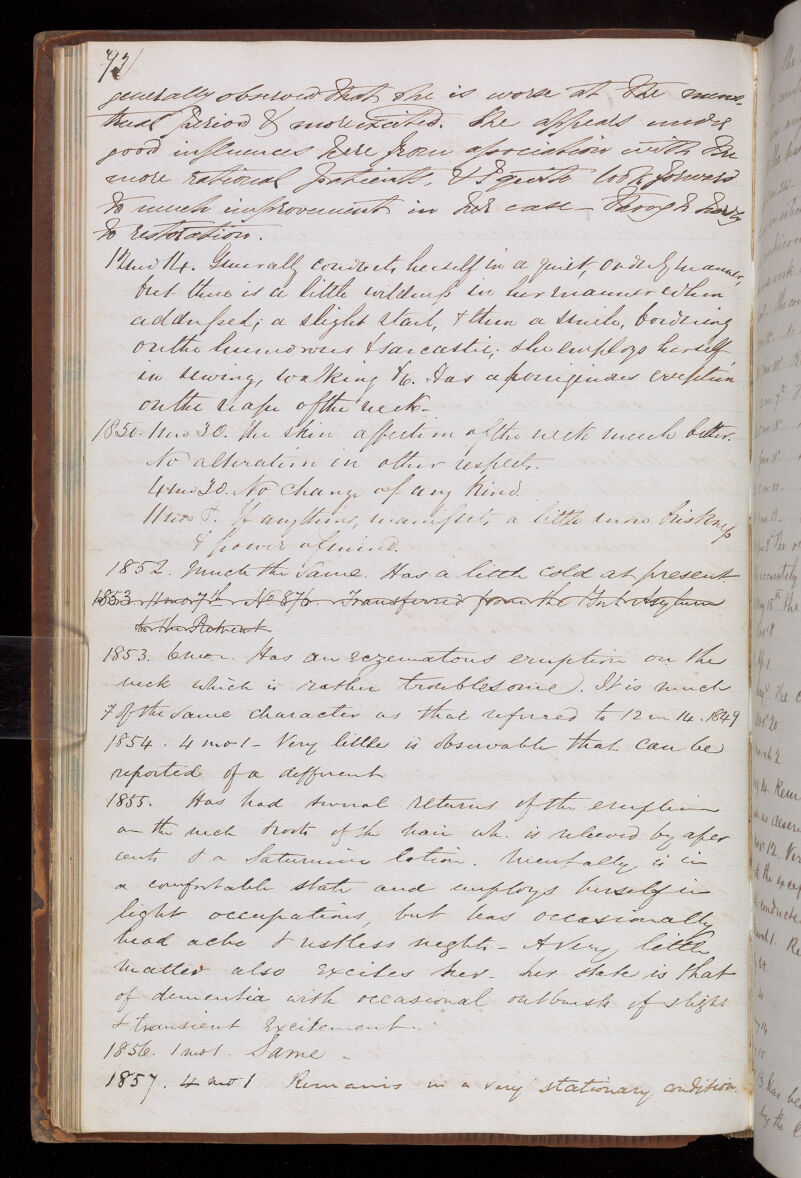 72
generally observed that she is worse at the mens-
trual period & more excited. She appears under
good influences here from association with the
more rational patients, & I quite look forward
to much improvement in her case – though hardly
to restoration.
12 mo 14. Generally conducts herself in a quiet, orderly manner,
but there is a little wildness in her manner when
addressed; a slight start, & then a smile, bordering
on the humorous & sarcastic; she employs herself
in sewing, walking &c. Has a porriginous eruption
on the nape of the neck –
1850. 1 mo 30. The skin affection of the neck much better.
No alteration in other respects.
4 mo 30. No change of any kind.
11 mo 8. If anything, manifests a little more briskness
& power of mind.
1852. Much the same. Has a little cold at present
1853. 4 mo 7th. No 876. Transferred from the York Asylum
to the Retreat
1853. 6 mo. Has an eczematous eruption on the
neck which is rather troublesome. It is much
of the same character as that referred to 12 m 14. 1849
1854. 4 mo 1 – Very little is observable that can be
reported of a different
1855. Has had several returns of the eruption
on the neck & roots of the hair wh. is relieved by aper
ients & a Saturnine lotion. Mentally is in
a comfortable state and employs herself in
light occupations, but has occasionally
head ache & restless nights – A very little
matter also excites her – her state is that
of dementia with occasional outbursts of slight
& transient excitement.
1856. 1 mo 1. Same –
1857. 4 mo 1 Remains in a very stationary condition.